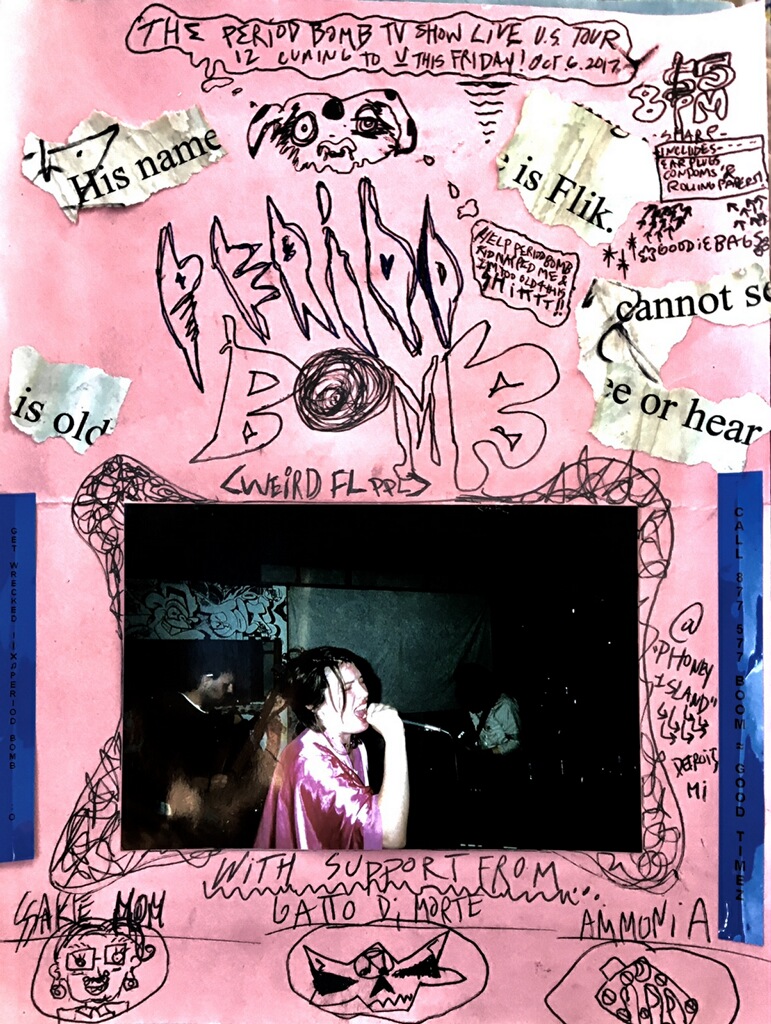 THE PERiOD BOMB TV SHOW LiVE U.S. TOUR
iZ CUMiNG TO U THIS FRiDAY! OCT. 6. 2017.
$5
8 PM
-SHARE-
INCLUDES-
EARPLUGS
CONDOMS &
ROLLING PAPERS!
GOODiEBAG
His name
e is Flik.
HELP PERIOD BOMB
KIDNAPPED ME &
I'M TOO OLD 4 THIS
SHiTTT!!
cannot se
ee or hear
is old
PERiOD
BOMB
<WEiRD FL PPL>
GET WRECKED !! X PERIOD BOMB :O
CALL 877 577 BOOM = GOOD TIMEZ
@
"PHONEY
ISLAND"
DETROiT,
Mi
WiTH SUPPORT FROM...
SAKE MOM
GATTO Di MORTE
AMMONiA